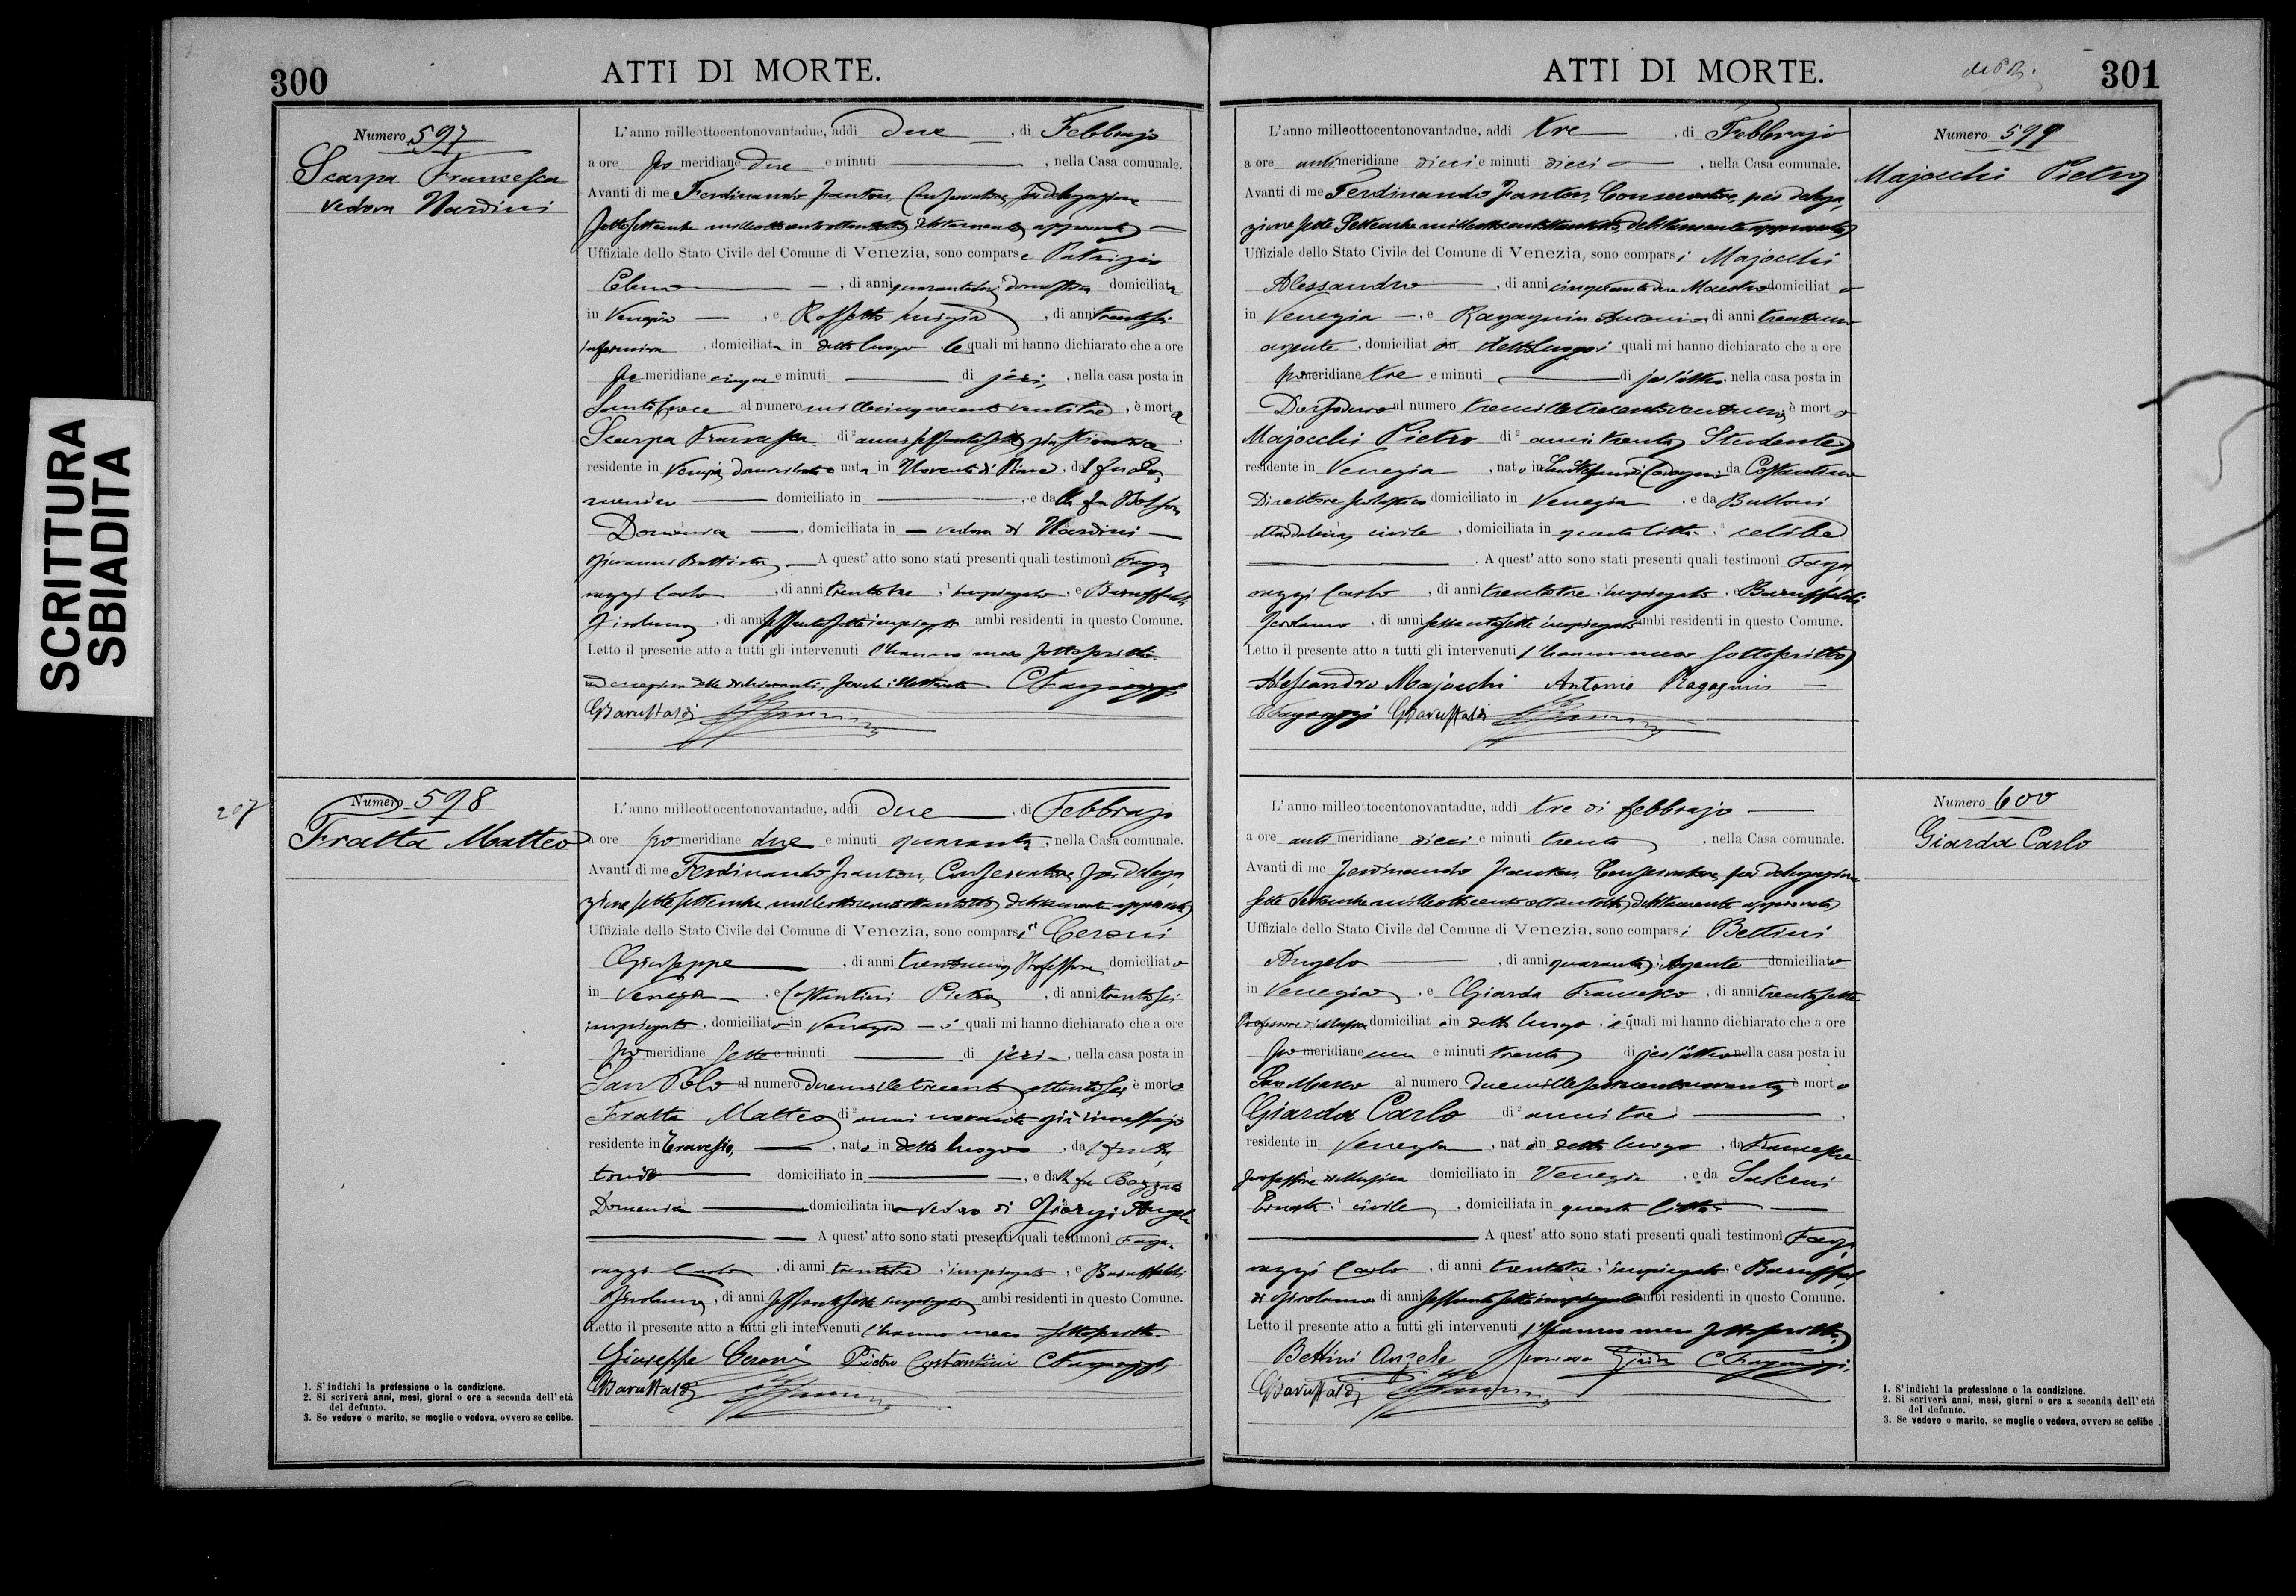 SCRITTURA
SBIADITA
300
ATTI DI MORTE.
Numero 597
Scarpa Francesca
vedova Nardini
L'anno milleottocentonovantadue, addi due, di Febbrajo
a ore po meridiane due e minuti —, nella Casa comunale.
Avanti di me Ferdinando Conservatore, per delegazione
sette settembre milleottocentottantotto debitamente approvata
Uffiziale dello Stato Civile del Comune di Venezia, sono comparse Patrizio
Elena —, di anni domestica domiciliata
in Venezia —, e Rossetto Luigia, di anni trentasei
infermiera, domiciliata in detto luogo le quali mi hanno dichiarato che a ore
po meridiane cinque e minuti — di jeri, nella casa posta in
Santa Croce al numero millecinquecento ventitre, è morta
Scarpa Francesca di anni sessantasette già
residente in Venezia nata in Noventa di Piave, dal fu Do,
menico — domiciliato in —, e dalla fu
Domenica —, domiciliata in — vedova di Nardini —
Giovanni Battista — A quest' atto sono stati presenti quali testimoni Faga,
razzi Carlo, di anni trentatre, impiegato, e Baruffaldi
Girolamo, di anni sessantasette impiegato ambi residenti in questo Comune.
Letto il presente atto a tutti gli intervenuti l'hanno meco sottoscritto
ad eccezione delle dichiaranti, perchè illetterate. C Fagarazzi
G Baruffaldi
207
Numero 598
Fratta Matteo
L'anno milleottocentonovantadue, addi due, di Febbrajo
a ore po meridiane due e minuti quaranta, nella Casa comunale.
Avanti di me Ferdinando Conservatore, per delega,
zione sette settembre milleottocentottantotto debitamente approvata
Uffiziale dello Stato Civile del Comune di Venezia, sono comparsi Ceroni
Giuseppe, di anni trentuno, Professore domiciliato
in Venezia —, e Costantini Pietro, di anni trentasei
impiegato, domiciliato in Venezia — i quali mi hanno dichiarato che a ore
po meridiane sette e minuti — di jeri —, nella casa posta in
San Polo al numero duemilletrecento ottantasei, è morto
Fratta Matteo di anni novanta già
residente in Travesio, —, nato in detto luogo, dal fu An
tonio domiciliato in —, e dalla fu
Domenica — domiciliata in — vedovo di Giorgi Angela
— A quest' atto sono stati presenti quali testimoni Faga,
razzi Carlo, di anni trentatre, impiegato, e Baruffaldi
Girolamo, di anni sessantasette impiegato ambi residenti in questo Comune.
Letto il presente atto a tutti gli intervenuti l'hanno meco sottoscritto.
Giuseppe Ceroni Pietro Costantini C Fagarazzi
G Baruffaldi
1. S'indichi la professione o la condizione.
2. Si scriverà anni, mesi, giorni o ore a seconda dell'età
del defunto.
3. Se vedovo o marito, se moglie o vedova, ovvero se celibe.
ATTI DI MORTE.
301
Numero 599
Majocchi Pietro
L'anno milleottocentonovantadue, addi tre —, di Febbrajo
a ore anti meridiane dieci e minuti dieci —, nella Casa comunale.
Avanti di me Ferdinando Conservatore, per delega,
zione sette Settembre milleottocentottantotto, debitamente approvata
Uffiziale dello Stato Civile del Comune di Venezia, sono comparsi Majocchi
Alessandro —, di anni cinquantadue Maestro domiciliato
in Venezia —, e Ragagnin Antonio di anni trentuno
agente, domiciliato in detto luogo i quali mi hanno dichiarato che a ore
po meridiane tre e minuti — di jer l'altro, nella casa posta in
Dorsoduro al numero tremilletrecentoventuno, è morto
Majocchi Pietro di anni trenta, Studente
residente in Venezia, nato in da Costantino
Direttore scolastico domiciliato in Venezia, e da Bulloni
Maddalena, civile, domiciliata in questa Città, celibe
—. A quest' atto sono stati presenti quali testimoni Faga,
razzi Carlo, di anni trentatre, impiegato, e Baruffaldi
Girolamo, di anni sessantasette impiegato ambi residenti in questo Comune.
Letto il presente atto a tutti gli intervenuti l'hanno meco sottoscritto
Alessandro Majocchi Antonio Ragagnin —
C Fagarazzi G Baruffaldi
Numero 600
Giarda Carlo
L'anno milleottocentonovantadue, addi tre di febbrajo —
a ore anti meridiane dieci e minuti trenta, nella Casa comunale.
Avanti di me Ferdinando Conservatore, per delegazione
sette Settembre milleottocentottantotto, debitamente approvata
Uffiziale dello Stato Civile del Comune di Venezia, sono comparsi Bettini
Angelo —, di anni quaranta, Agente domiciliato
in Venezia, e Giarda Francesco, di anni trentasette
Professore di Musica domiciliato in detto luogo, i quali mi hanno dichiarato che a ore
po meridiane una e minuti trenta di jer l'altro nella casa posta in
San Marco al numero è morto
Giarda Carlo di anni tre —,
residente in Venezia, nato in detto luogo, da Francesco
professore di Musica domiciliato in Venezia, e da
civile, domiciliata in questa Città —
— A quest' atto sono stati presenti quali testimoni Faga,
razzi Carlo, di anni trentatre, impiegato e Baruffal,
di Girolamo di anni sessantasette impiegato ambi residenti in questo Comune.
Letto il presente atto a tutti gli intervenuti l'hanno meco sottoscritto
Bettini Angelo Francesco Giarda C Fagarazzi
G Baruffaldi
1. S'indichi la professione o la condizione.
2. Si scriverà anni, mesi, giorni o ore a seconda dell'età
del defunto.
3. Se vedovo o marito, se moglie o vedova, ovvero se celibe.